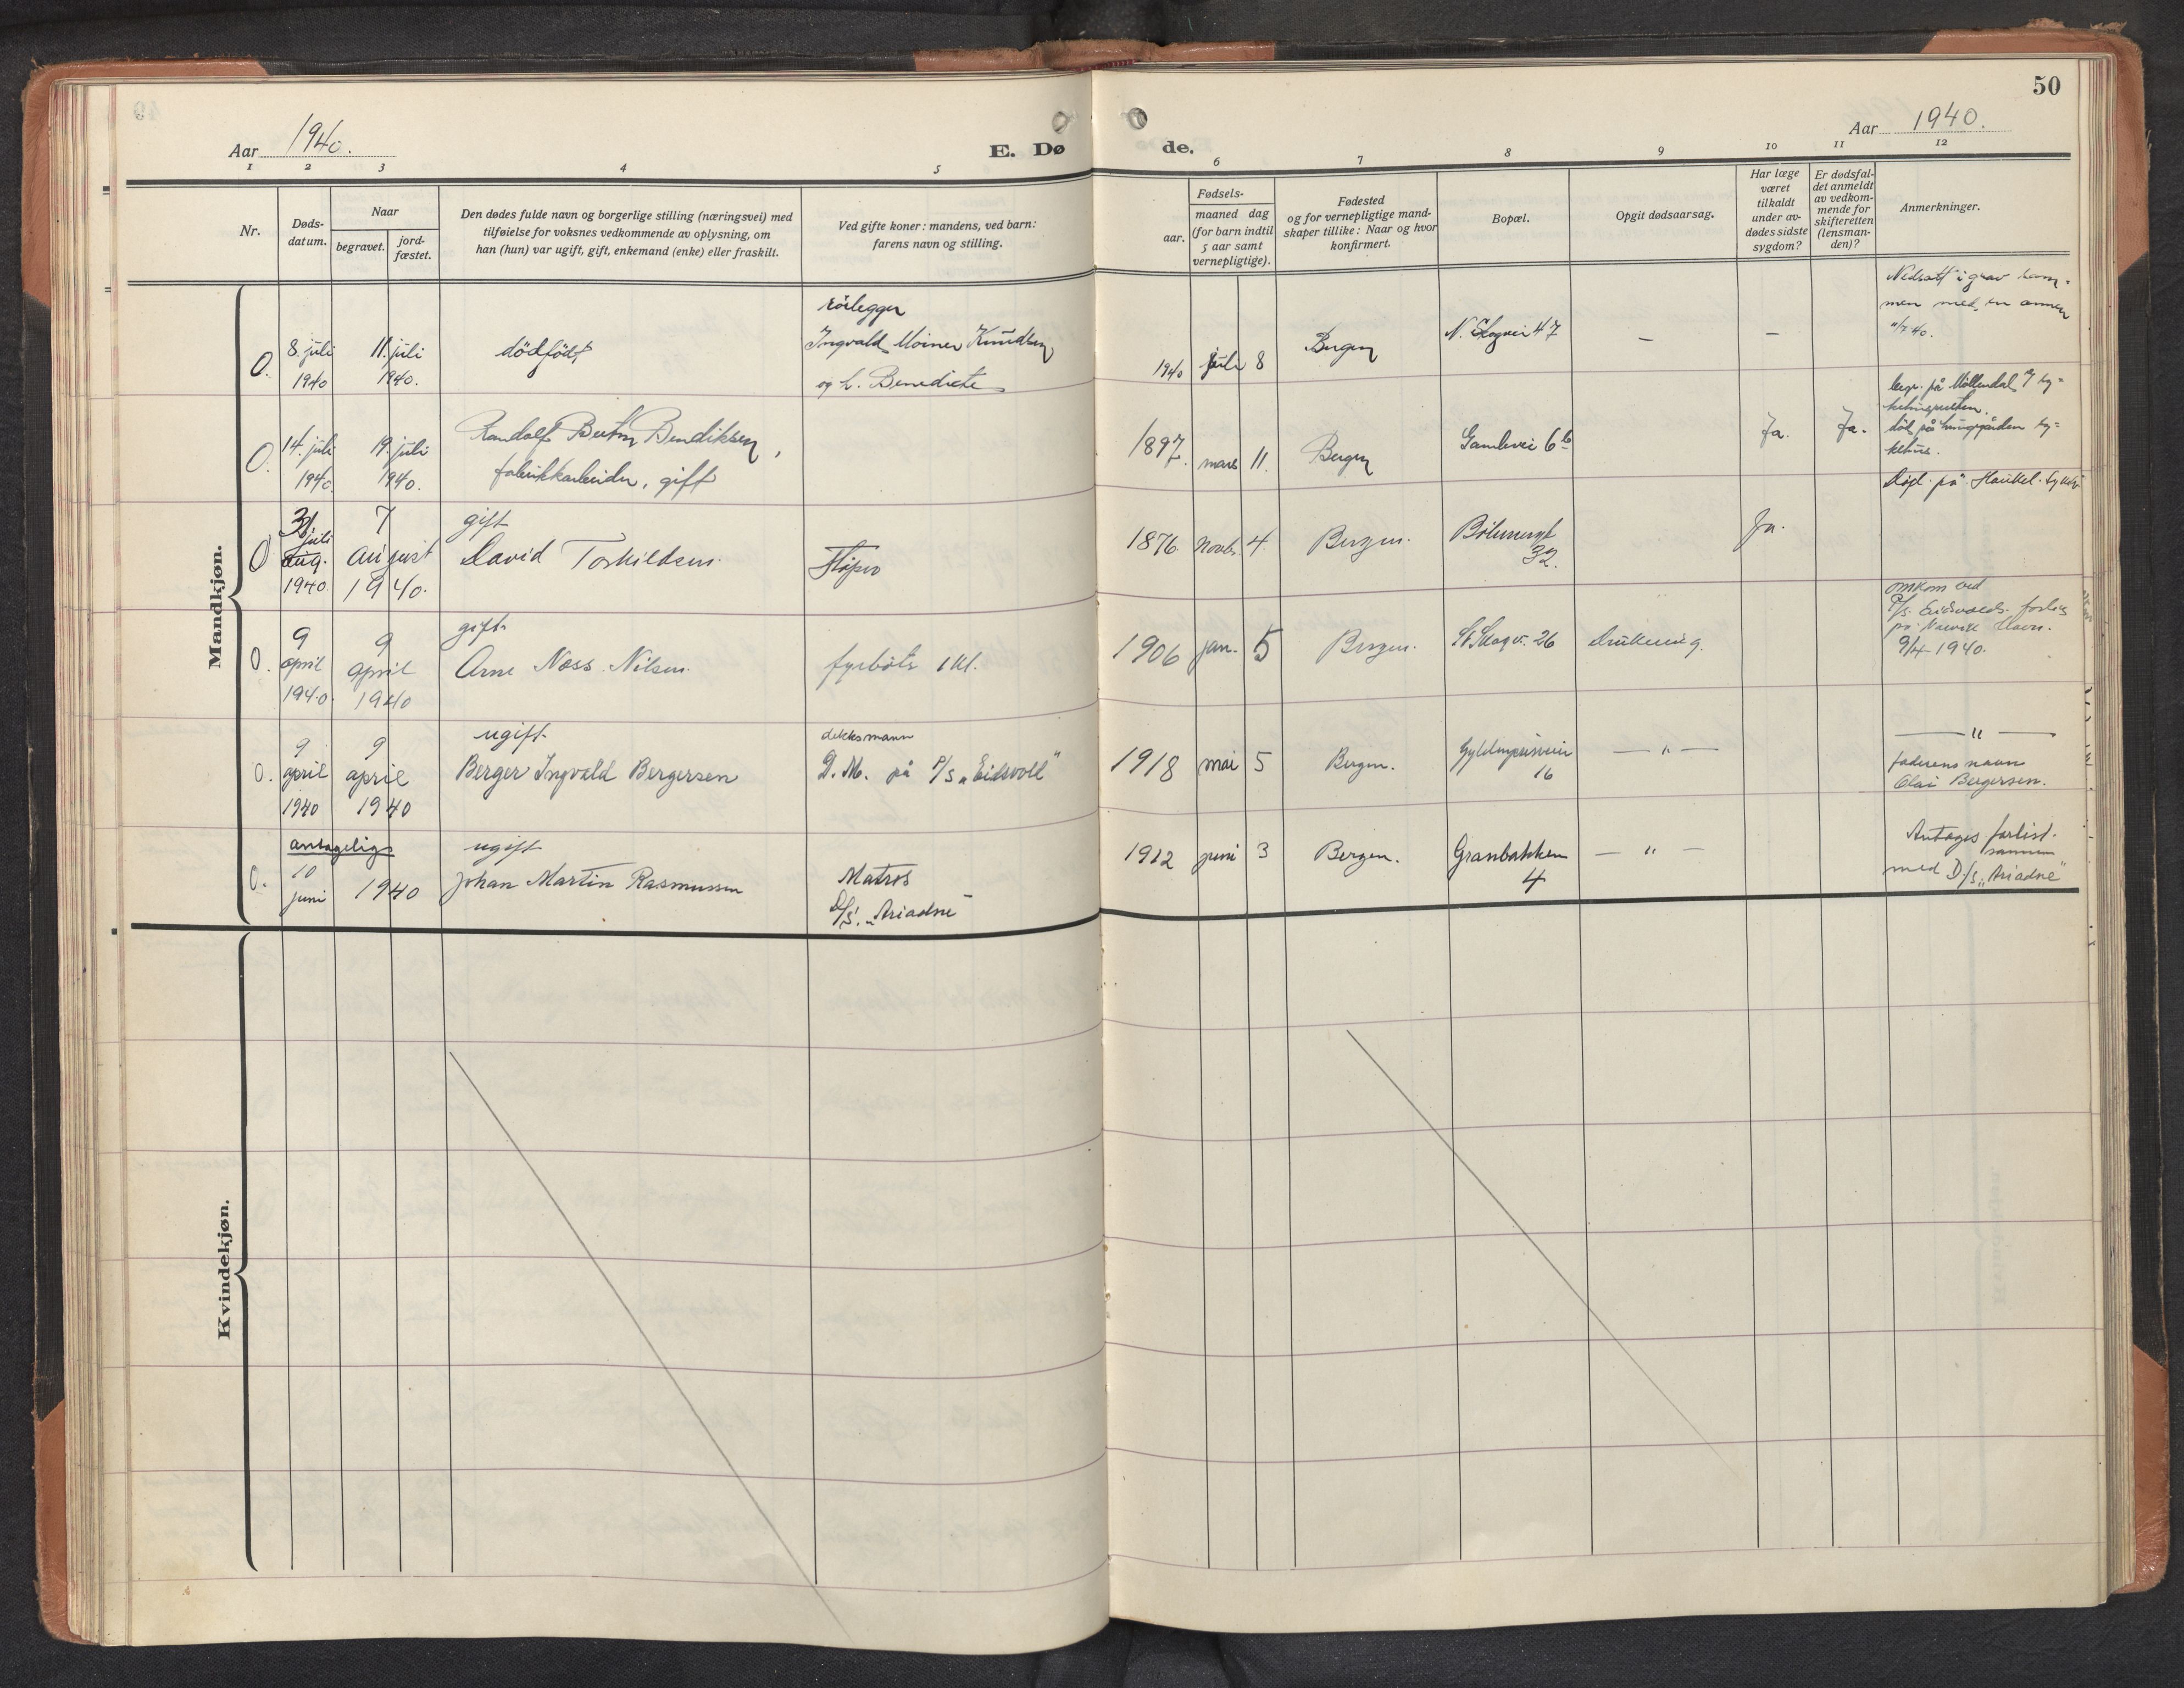 50
Aar 1940.
E. Dø
de.
Aar 1940.
1 2 3 4 5 6 7 8 9 10 11 12
Nr.
Døds-
datum.
Naar
begravet.
jord-
fæstet.
Den dødes fulde navn og borgerlige stilling (næringsvei) med
tilføielse for voksnes vedkommende av oplysning, om
han (hun) var ugift, gift, enkemand (enke) eller fraskilt.
Ved gifte koner: mandens, ved barn:
farens navn og stilling.
Fødsels-
aar.
maaned dag
(for barn indtil
5 aar samt
vernepligtige).
Fødested
og for vernepligtige mand-
skaper tillike: Naar og hvor
konfirmert.
Bopæl.
Opgit dødsaarsag.
Har læge
været
tilkaldt
under av-
dødes sidste
sygdom?
Er dødsfal-
det anmeldt
av vedkom-
mende for
skifteretten
(lensman-
den)?
Anmerkninger.
Mandkjøn.
0.
8. juli
1940
11. juli
1940.
dödfödt
rörlegger
Ingvald Moiner Knudsen
og h. Benedicte
1940 juli 8
Bergen
N. Skogvei 47
—
—
Nedsatt i grav sam-
men med en annen
0.
14. juli
1940
19. juli
1940.
Randolf Bendiksen,
fabrikkarbeider, gift
1897. mars 11.
Bergen
Gamlevei 6b
Ja.
Ja.
begr. på Möllendal
död på Lungegården sy-
kehus.
0
31
juli
aug.
1940.
7
august
1940.
gift
David Torkildsen.
1876. Novb. 4.
Bergen.
32.
Ja.
Död på Haukel. sykeh.
0.
9
april
1940.
9
april
1940
gift.
Arne Næss Nilsen.
fyrböter 1 kl.
1906 jan. 5
Bergen.
St. Skogv. 26
drukning.
omkom ved
P/s. Eidsvolds forlis
på Narvik Havn.
9/4-1940.
0.
9
april
1940
9
april
1940
ugift
Berger Ingvald Bergersen
dekksmann
D. M. på P/s „Eidsvoll"
1918 mai 5
Bergen.
Gyldenprisveien
16
— „ —
— „ —
faderens navn
Olai Bergersen.
0.
antagelig
10
juni 1940
ugift
Johan Martin Rasmussen
Matros
D/s. „Ariadne"
1912 juni 3
Bergen.
Granbakken
4
— „ —
Antages forlist
sammen
med D/s „Ariadne"
Kvindekjøn.